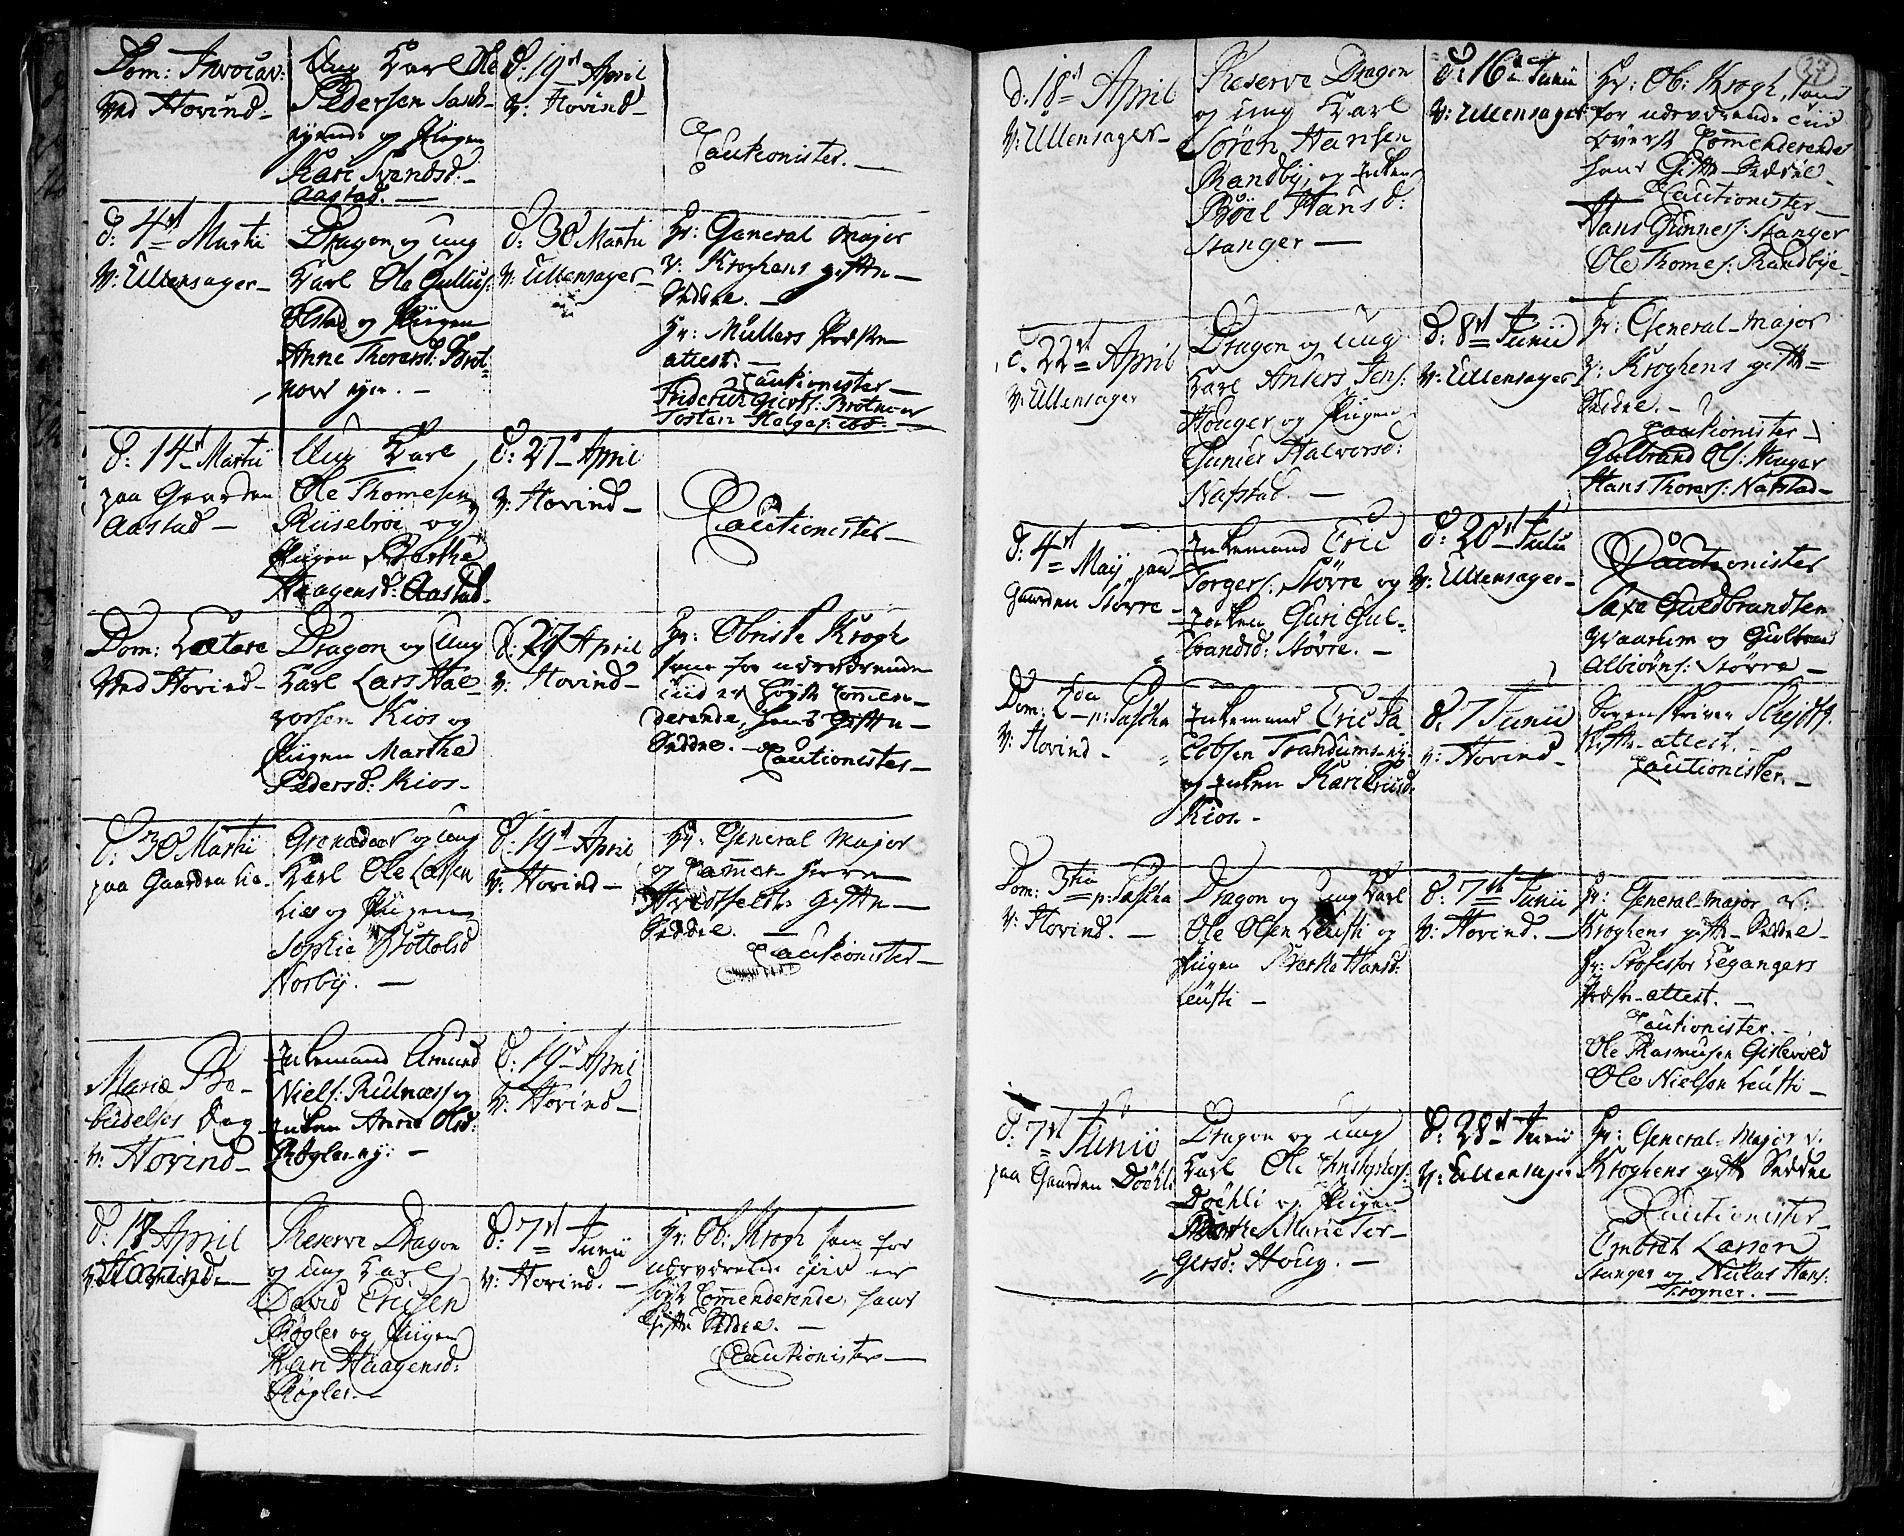 Dom: Invocav:
Ved Hovind
Ung Karl Ole
Pedersen
og Pigen
Kari Svendsd:
Aastad.
d: 19de April
v: Hovind
Cautionister.
d: 4de Martii
V: Ullensager
Dragon og Ung
Karl Ole Gullus:
Olstad og Pigen
Anne Thoresd: Brot
d: 30 Martii
V: Ullensager
Hr: General Major
V: Kroghens gifte
Seddel.
Hr: Müllers
attest.
Cautionister
Tosten Helges: ibd:
d: 14de Martii
paa Gaarden
Aastad
Ung Karl
Ole Thomesen
og
Pigen Marthe
Haagensd: Aastad.
d: 27de April
V: Hovind
Cautionister
Dom: Lætare
Ved Hovind
Dragon og Ung
Karl Lars Hal
vorsen Kios og
Pigen Marthe
Pedersd: Kios
d: 27 April
V: Hovind
Hr: Obriste Krogh
som for nærværende
tiid er høyst Commen
derende, hans Gifte
Seddel.
Cautionister
d: 30 Martii
paa Gaarden Lie
Grenadeer og Ung
Karl Ole Larsen
Lier og Pigen
Sophie
Norby.
d: 19de April
V: Hovind
Hr: General Major
og Cammer Herre
Gifte
Seddel.
Cautionister
Mariæ Be
budelses Dag
v: Hovind
Enkemand Amund
Niels: Rudnæss og
Enken Anne Olsd:
Røgler
d: 19de April
V: Hovind
d: 17 April
Hovind
Reserve Dragon
og Ung Karl
David Ericsen
Røgler og Pigen
Kari Haagensd:
Røgler.
d: 7de Junii
V: Hovind.
Hr: Ob: Krogh som for
nærværende tiid er
høyst Commenderende, hans
Gifte Seddel.
Cautionister
27
d. 18de April
V: Ullensager
Reserve Dragon
og Ung Karl
Sören Hansen
Randby, og Enken
Böel Hansd:
Stanger
d: 16de Junii
V: Ullensager
Hr: Ob: Krogh, som
for nærværende tiid
høyest Commenderende
hans Gifte Seddel.
Cautionister
Hans Gunners: Stanger
Ole Thomes: Randbye
d. 22de April
V: Ullensager
Dragon og Ung
Karl Anders Jens:
Houger og Pigen
Gunier Halvorsd:
Nafstad.
d: 8de Junii
V: Ullensager
Hr: General-Major
V: Kroghens gifte
Seddel.
Cautionister
Gulbrand Ols: Houger
Hans Thores: Nafstad
d: 4de Maij paa
Gaarden Större
Enkemand Eric
Torgers: Större og
Enken Guri Gul
brandsd: Större.
d: 20de Julii
V: Ullensager
Cautionister
Saxe Guldbrandsen
Waarum og Gulbrand
Albiörns: Större
Dom: 2da p: Pascha
V: Hovind
Enkemand Eric Ja
cobsen Trandums
og Enken Kari
Kios.
d: 7 Junii
V: Hovind
Sorenskriver
Skifte attest.
Cautionister.
Dom: 3tia p: Pascha
V: Hovind.
Dragon og Ung Karl
Ole Olsen Leusti og
Pigen Hansd:
Leusti
d: 7de Junii
V: Hovind.
Hr: General-Major v:
Kroghens gifte Seddel
Hr: Professor Leganger's
attest.
Cautionister.
Ole Rasmusen Gislevold
Ole Nielsen Leusti
d: 7de Junii
paa Gaarden Döehli
Dragon og Ung
Karl Ole
Döehli og Pigen
Marie Tor
gersd: Houg.
d: 28de Junii
V: Ullensager
Hr: General-Major v.
Kroghens gifte Seddel
Cautionister
Embret Larsen
Stanger og Niclas Hans:
Trogner.